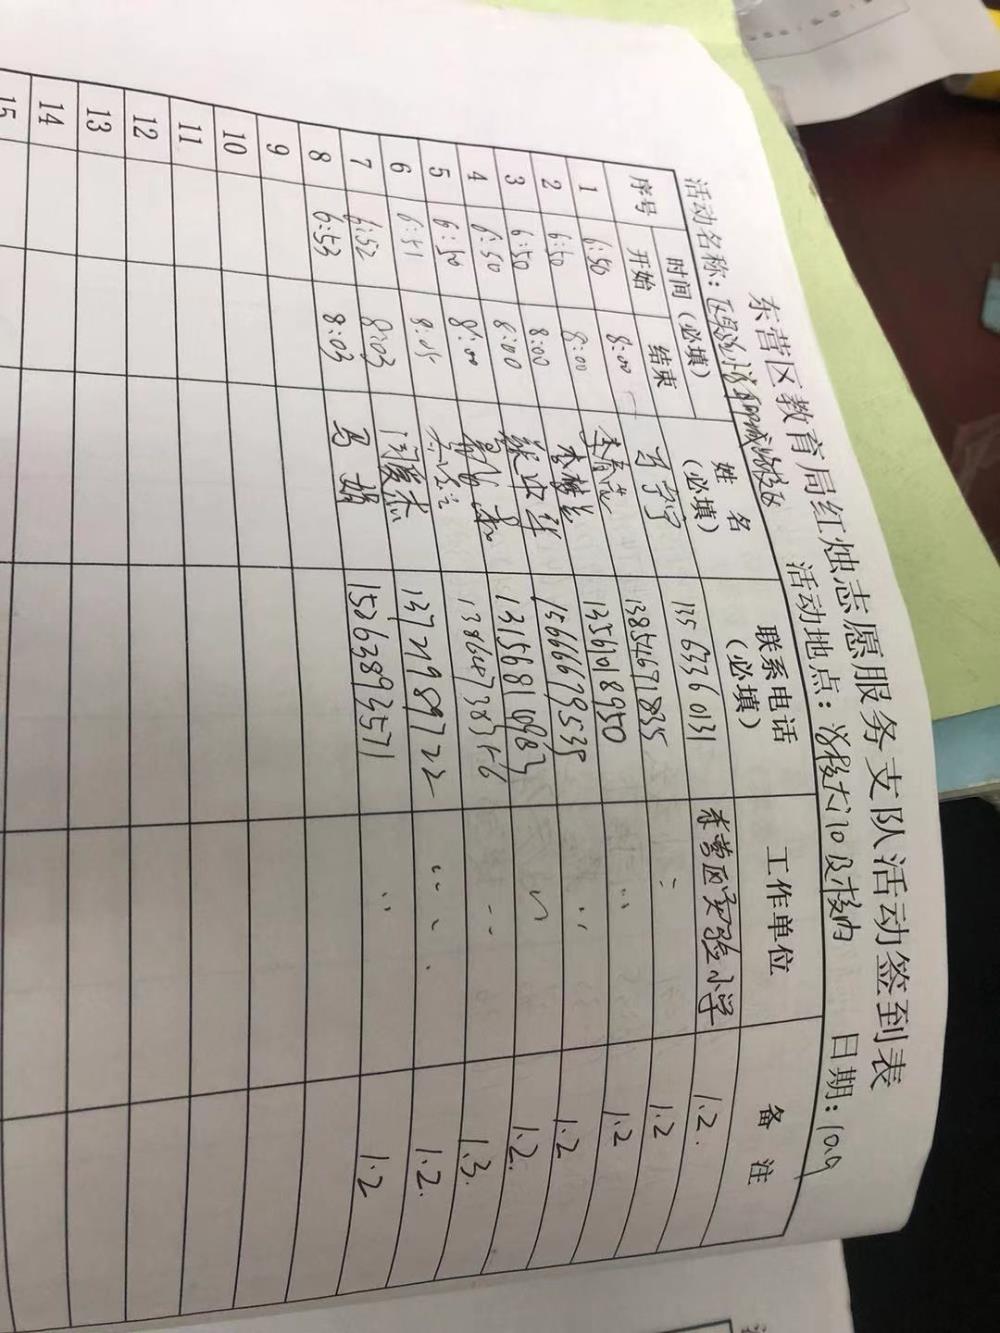 东营区教育局红烛志愿服务支队活动签到表
活动名称： 活动地点：学校大门口及校内 日期：10.9
序号 时间（必填） 姓名（必填） 联系电话（必填） 工作单位 备注
开始 结束
1 6:50 8:00 宁宁 13563360131 东营区实验小学 1.2.
2 6:50 8:00 李 13854671835 1.2
3 6:50 8:00 李 13561018950 1.2
4 6:50 8:00 张 15666679539 1.2
5 6:50 8:00 13156810983 1.2.
6 6:51 8:05 13864738356 1.3.
7 6:52 8:03 闫 杰 13721989722 1.2.
8 6:53 8:03 马娟 15263893571 1.2
9
10
11
12
13
14
15